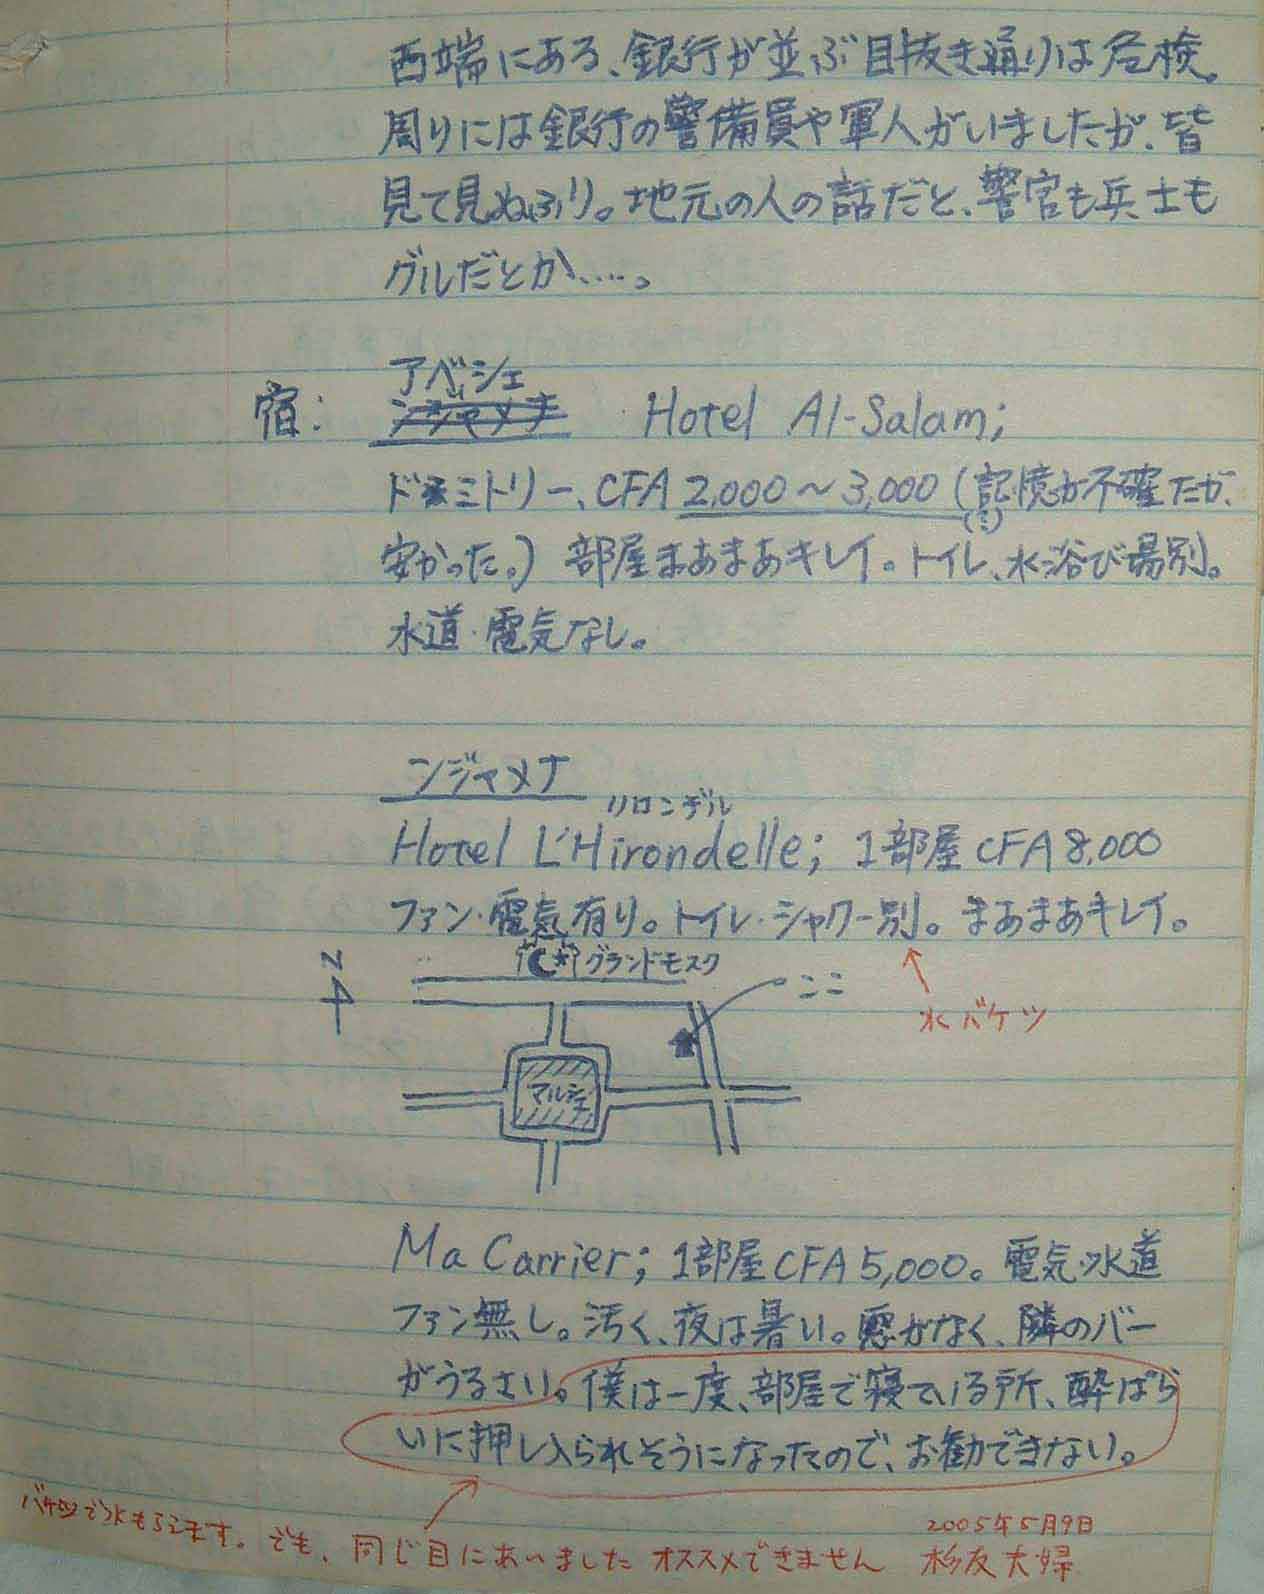 西端にある、銀行が並ぶ目抜き通りは危検。
周りには銀行の警備員や軍人がいましたが、皆
見て見ぬふり。地元の人の話だと、警官も兵士も
グルだとか、…。
アベシェ
宿: ンジャメナ Hotel Al-Salam;
ドミトリー、CFA 2,000〜3,000 (記憶が不確だが、
安かった。) 部屋まあまあキレイ。トイレ、水浴び場別。
水道・電気なし。
ンジャメナ
リロンデル
Hotel L'Hirondelle; 1部屋 CFA 8,000
ファン・電気有り。トイレ・シャワー別。まあまあキレイ。
N
グランドモスク
ここ
水バケツ
マルシェ
Ma Carrier; 1部屋 CFA 5,000。電気・水道
ファン無し。汚く、夜は暑い。窓がなく、隣のバー
がうるさい。僕は一度、部屋で寝ている所、酔ぱら
いに押し入られそうになったので、お勧できない。
バケツで水もらえます。でも、同じ目にあいました オススメできません
2005年5月9日
杉友夫婦